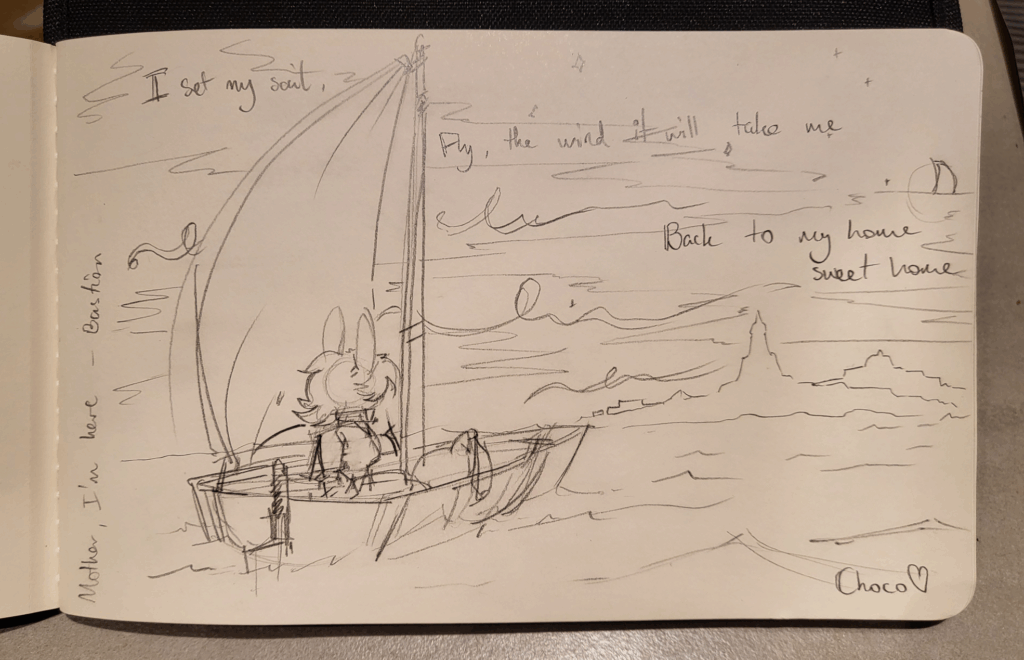 I set my sail,
Fly, the wind it will take me
Back to my home
sweet home
Mother, I'm here – Bastion
Choco♡